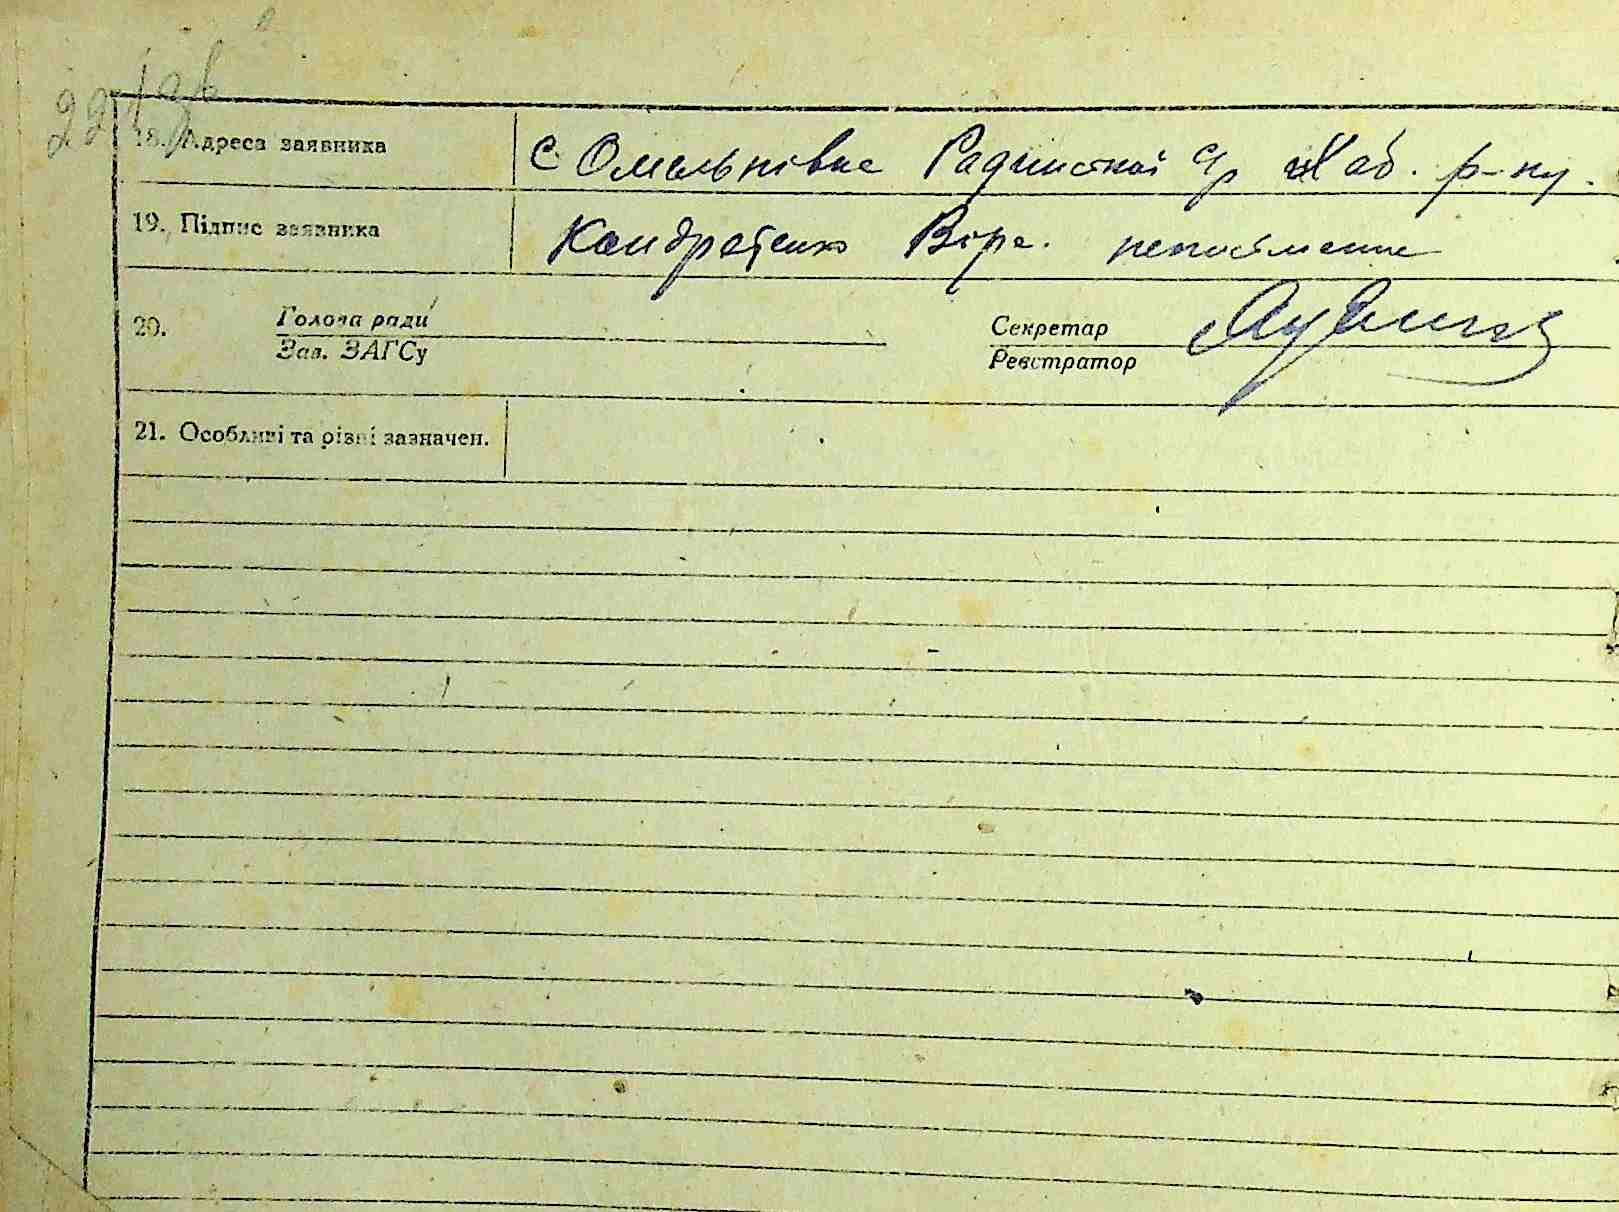 18. Адреса заявника С Омельнівка Радчиської с/р Хаб. р-ну.
19. Підпис заявника Кондратенко Віра. неписьменна
20. Голова ради Секретар
Зав. ЗАГСу Реєстратор
21. Особливі та різні зазначен.